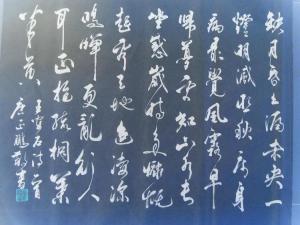 缺月昏昏漏未央一
燈明滅照秋床身
病最覺風露早
歸夢不知山水長
坐感歲時歌慷慨
起看天地色淒凉
鳴蟬更亂行人
耳正抱疏桐葉
半黄 王安石詩一首
書